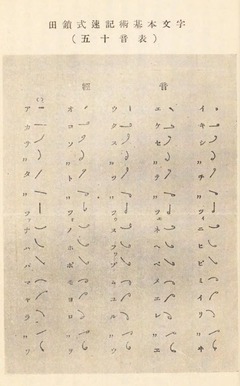 田鎖式速記術基本文字
(五十音表)
音 經
イキシ〃チ〃ツィニヒピミイリ〃ヰ
エケセ〃テ〃ツェネヘペメエレ〃ヱ
ウクス〃ツ〃ツゥヌフプムユル〃ウ
オコソ〃ト〃ツォノホポモヨロ〃ヲ
アカサ〃タ〃ツァナハパマヤラ〃ワ